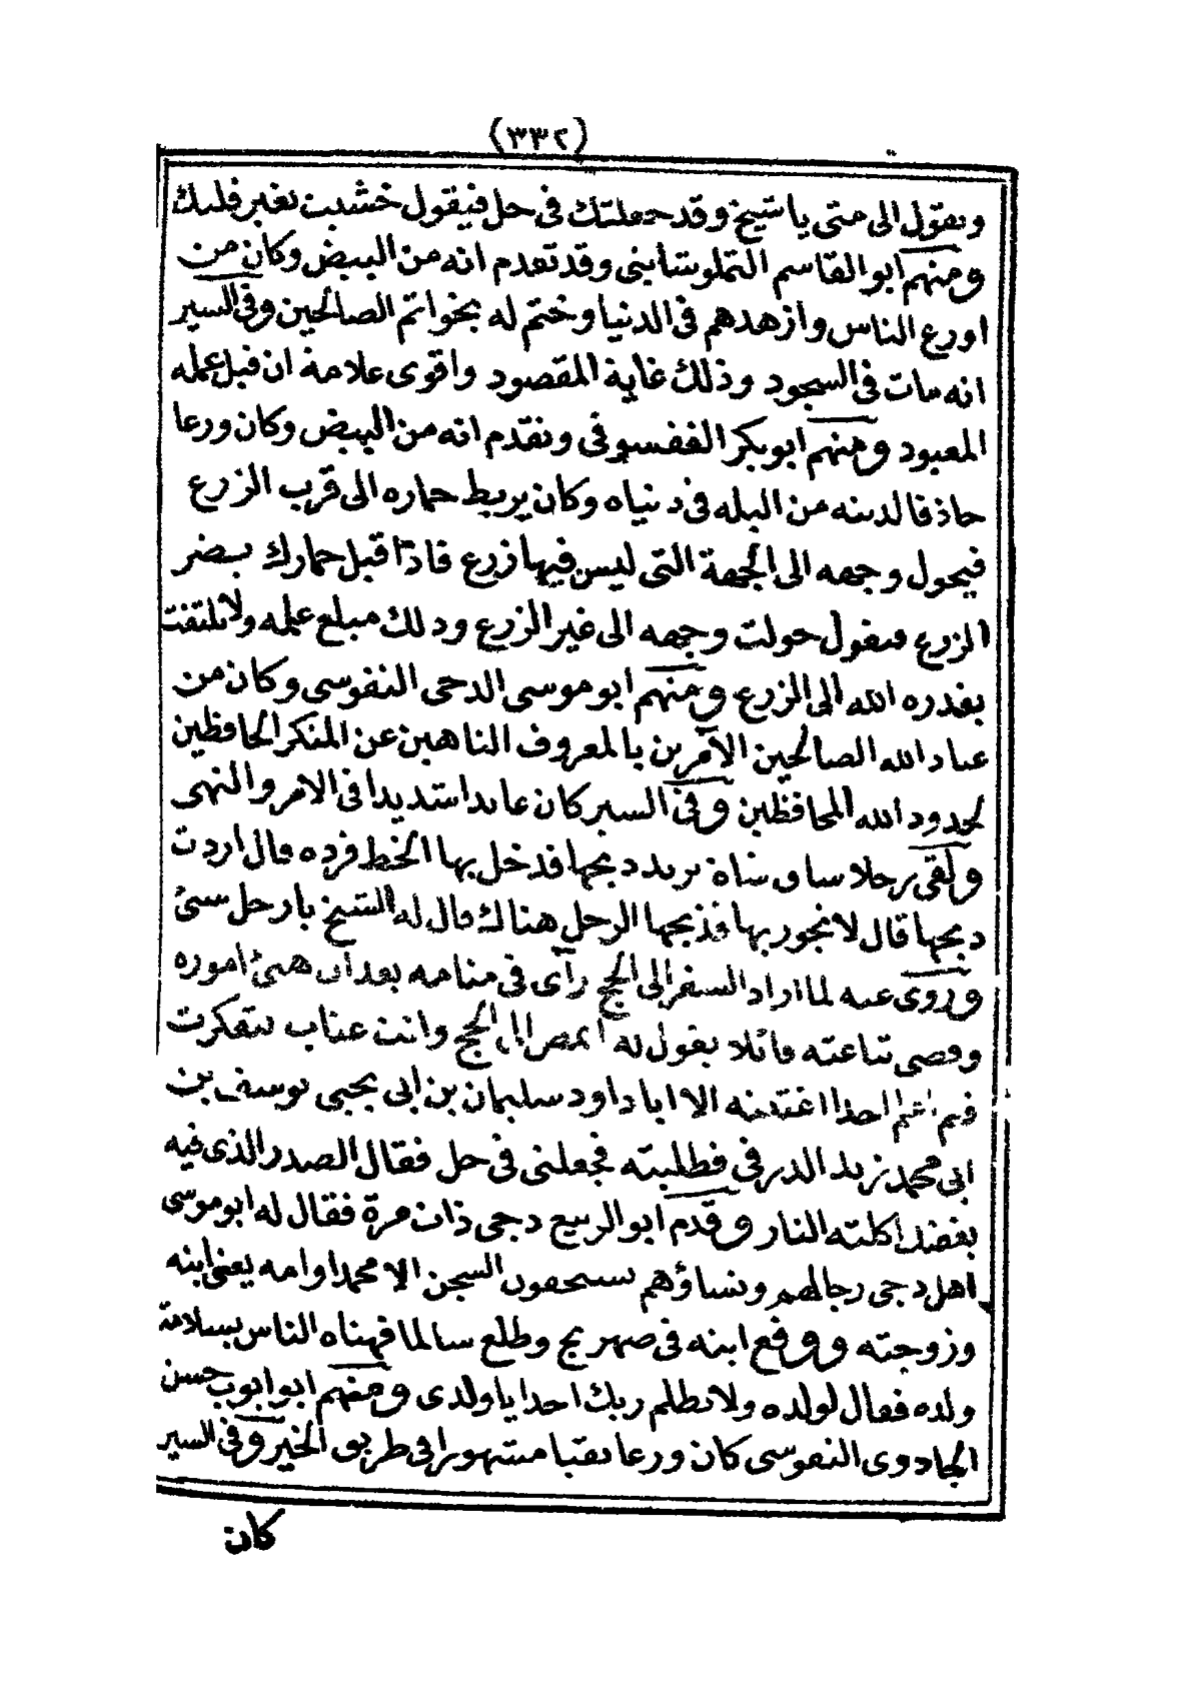 (٣٣٢)
ويقول الى متى يا شيخ وقد جعلتك فى حل فيقول خشيت تغير قلبك
ومنهم ابو القاسم التملوشايتى وقد تقدم انه من البيض وكان من
اورع الناس وازهدهم فى الدنيا وختم له بخواتم الصالحين وفى السير
انه مات فى السجود وذلك غاية المقصود واقوى علامة ان قبل عمله
المعبود ومنهم ابو بكر الغفسوفى وتقدم انه من البيض وكان ورعا
حاذقا لدينه من البله فى دنياه وكان يربط حماره الى قرب الزرع
فيحول وجهه الى الجهة التى ليس فيها زرع فاذا قيل حمارك يضر
الزرع فيقول حولت وجهه الى غير الزرع وذلك مبلغ علمه ولا يلتفت
بقدره الله الى الزرع ومنهم ابو موسى الدجى النفوسى وكان من
عباد الله الصالحين الآمرين بالمعروف الناهين عن المنكر الحافظين
لحدود الله المحافظين وفى السير كان عابدا شديدا فى الامر والنهى
ولقى رجلا ساق شاة يريد ذبحها فدخل بها الخط فرده قال اردت
ذبحها قال لا تجوز بها فذبحها الرجل هناك قال له الشيخ يا رجل سئ
وروى عنه لما اراد السفر الى الحج رأى فى منامه بعد ان هئ اموره
وقضى تباعته قائلا يقول له تمضى الى الحج وانت عتاب فتفكرت
فلم اعلم احدا اغتبته الا ابا داود سليمان بن ابى يحيى يوسف بن
ابى محمد زيد الدرفى فطلبته فجعلنى فى حل فقال الصدر الذى فيه
بغضك اكلته النار وقدم ابو الربيع دجى ذات مرة فقال له ابو موسى
اهل دجى رجالهم ونساؤهم يستحقون السجن الا محمدا وامه يعنى ابنه
وزوجته ووقع ابنه فى صهريج وطلع سالما فهناه الناس بسلامة
ولده فقال لولده ولا يظلم ربك احدا يا ولدى ومنهم ابو ايوب حسن
الجادوى النفوسى كان ورعا تقيا مشهورا فى طريق الخير وفى السير
كان